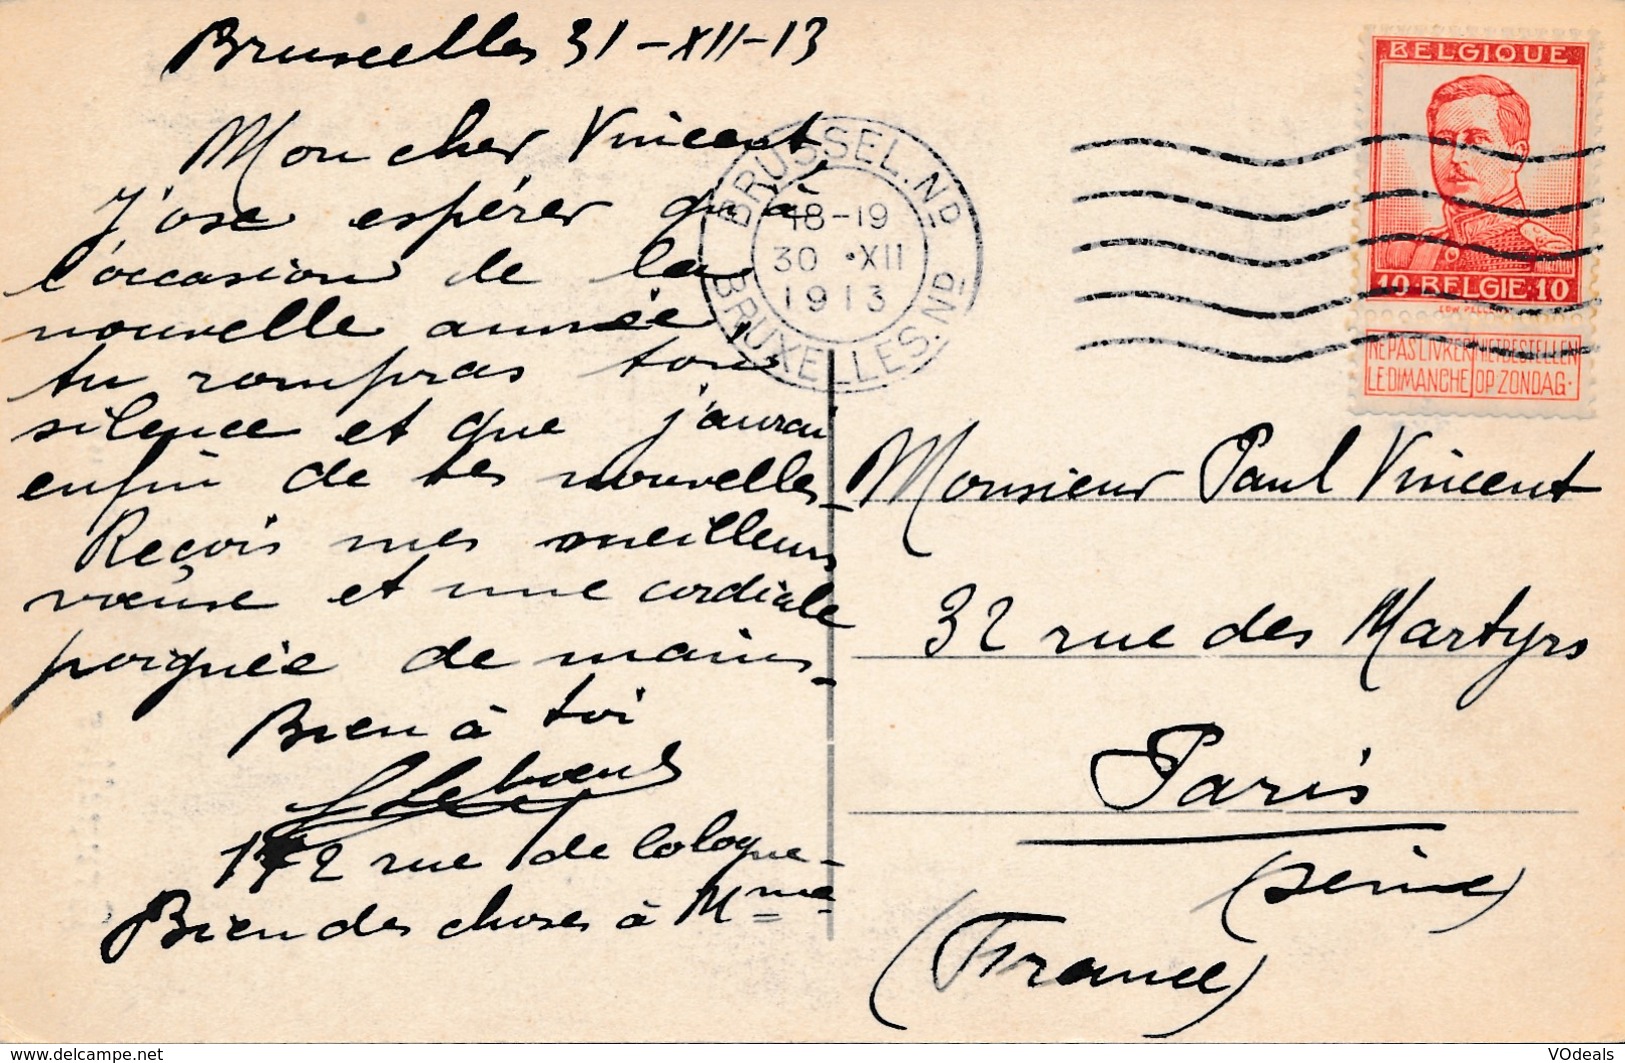 Bruxelles 31-XII-13
Mon cher Vincent,
J'ose espérer qu'à
l'occasion de la
nouvelle année,
tu rompras ton
silence et que j'aurai
enfin de tes nouvelles-
Reçois mes meilleurs
voeux et une cordiale
poignée de mains-
Bien à toi
Leboeuf
172 rue de Cologne-
Bien des choses à Mme
BRUSSEL.ND
18-19
30 •XII
1913
BRUXELLES.ND
BELGIQUE
10·BELGIE·10
NE PAS LIVRER NIET BESTELLEN
LE DIMANCHE OP ZONDAG·
Monsieur Paul Vincent
32 rue des Martyrs
Paris
(Seine)
(France)
www.delcampe.net
VOdeals